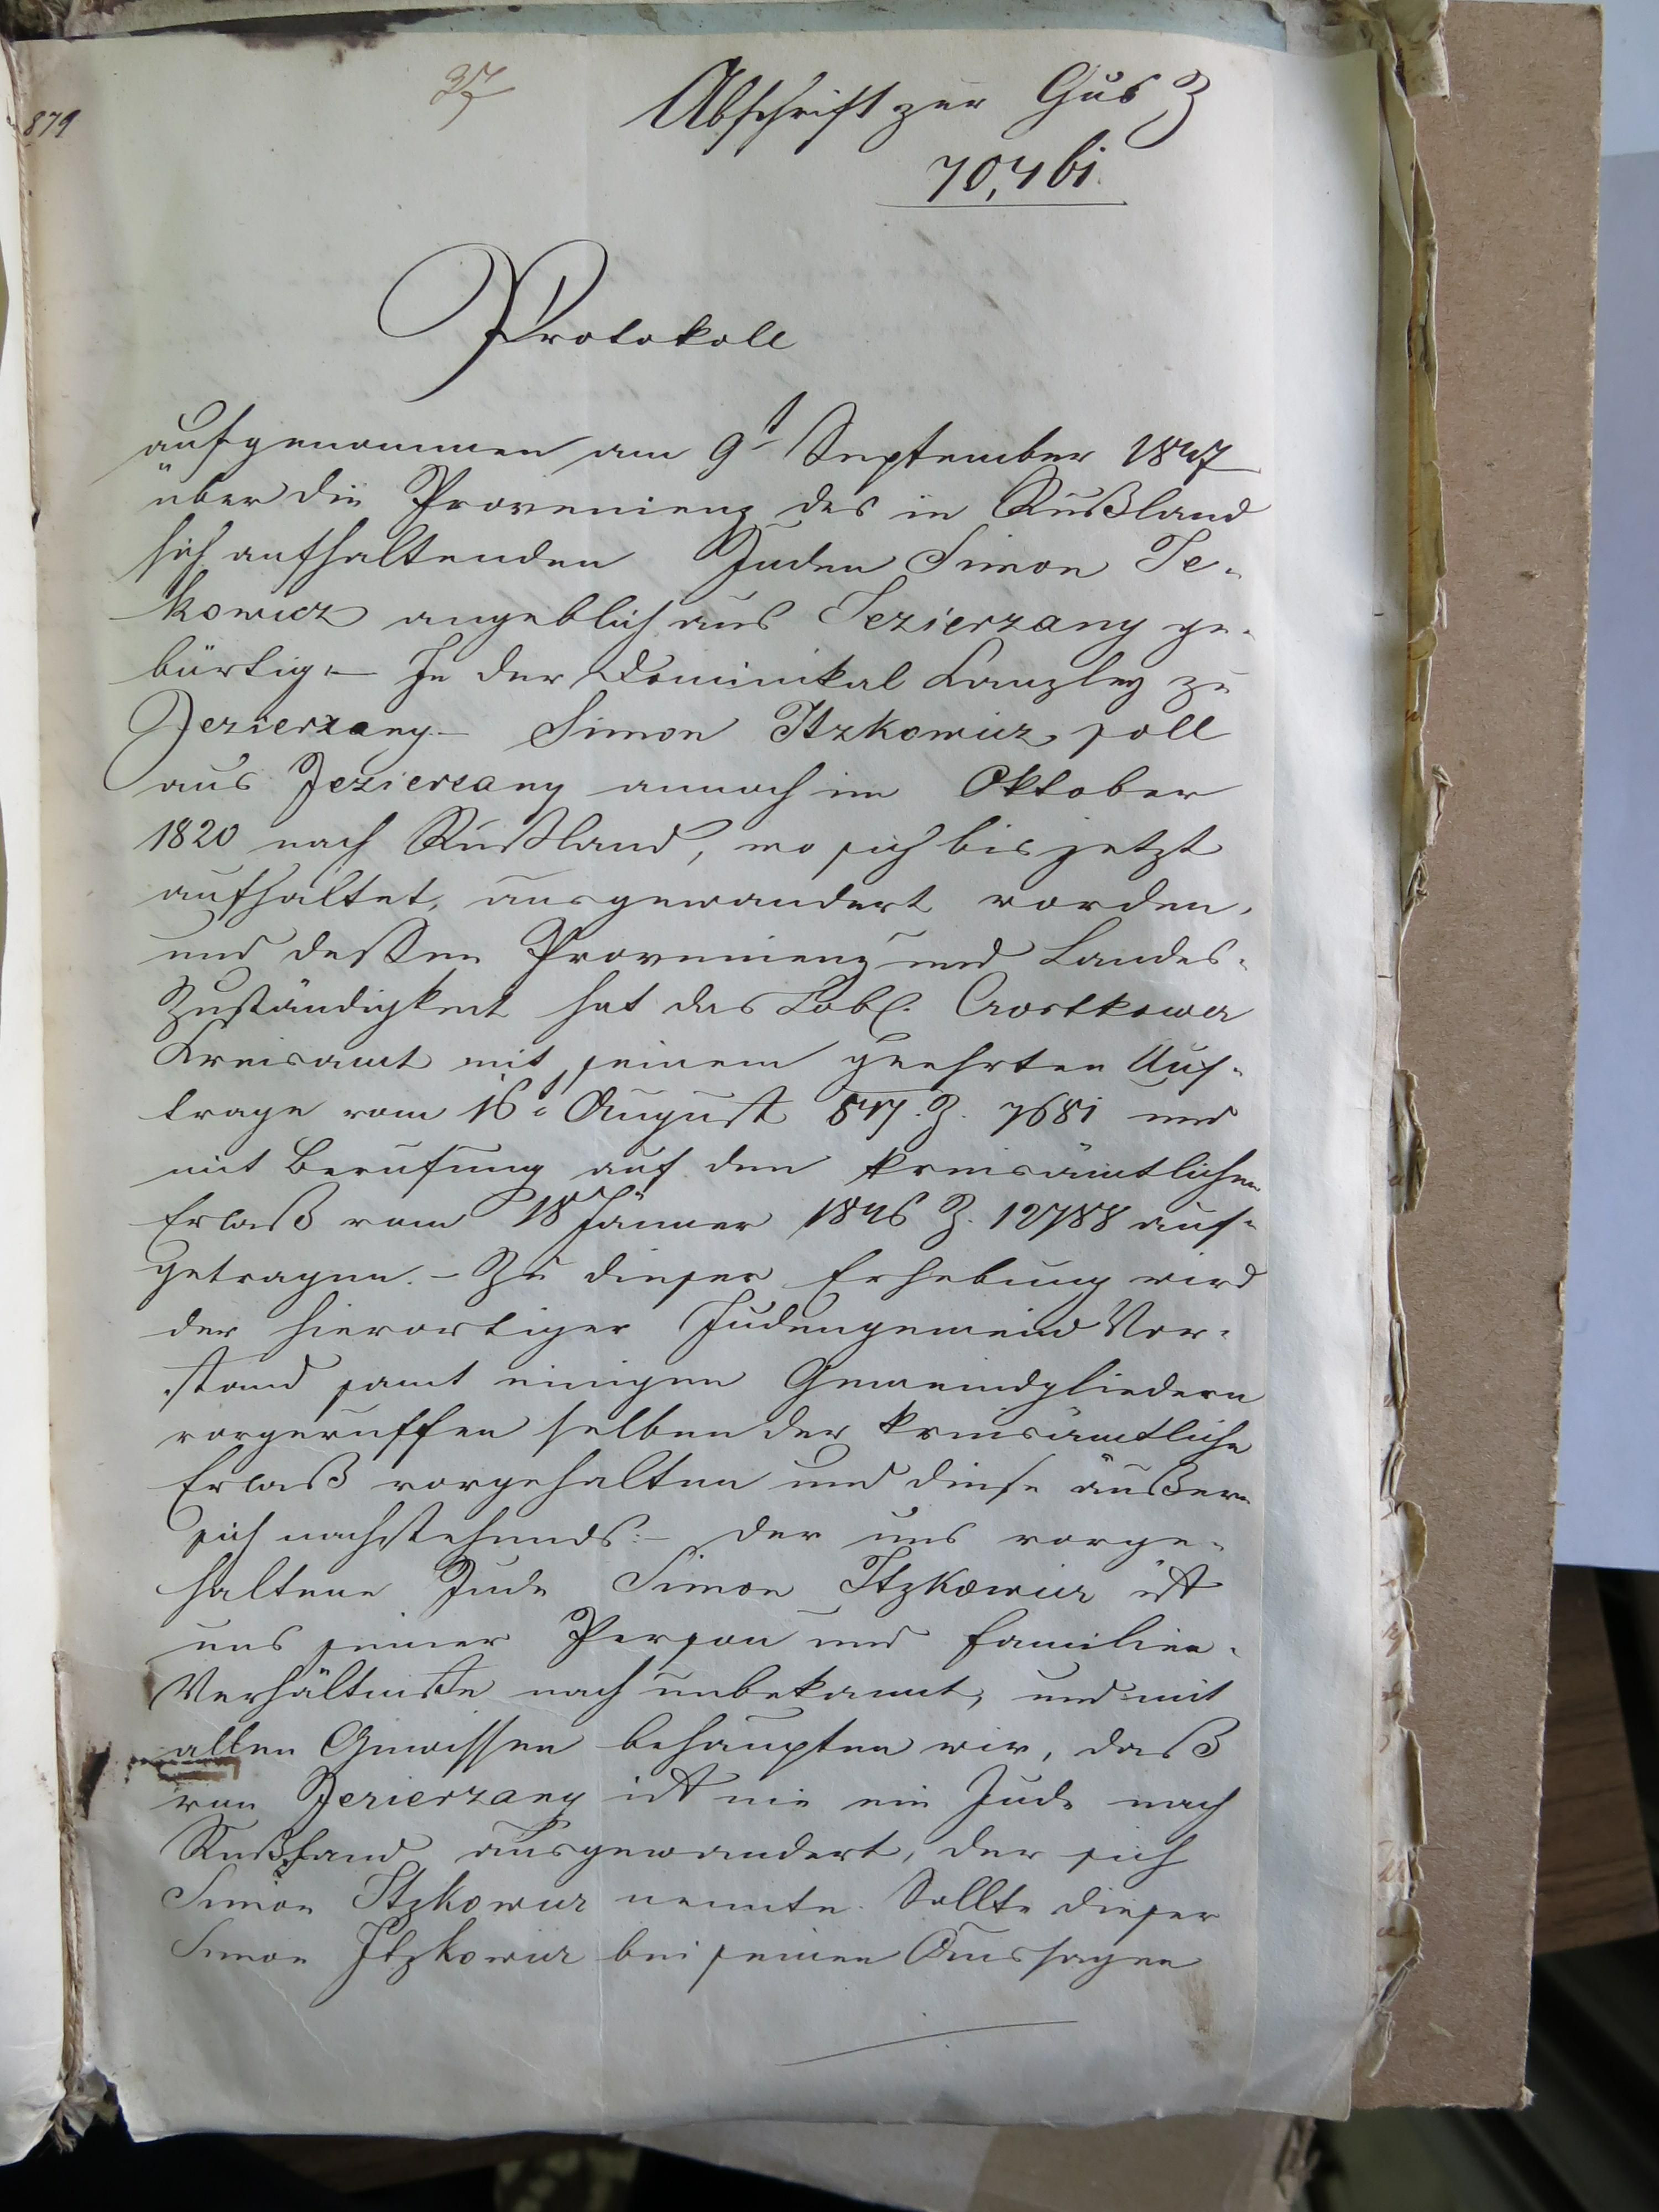 879
37
Abschrift zur Gub Z
70,461
Protokoll
aufgenommen am 9t September 1847
über die Provenienz des in Rußland
sich aufhaltenden Juden Simon Je-
kowicz angeblich aus Jezierzany ge-
bürtig.— In der Dominikal Kanzley zu
Jezierzany— Simon Itzkowicz soll
aus Jezierzany annoch im Oktober
1820 nach Rußland, wo sich bis jetzt
aufhaltet, ausgewandert worden,
und dessen Provenienz und Landes-
Zuständigkeit hat das Löbl. Czortkower
Kreisamt mit seinem geehrten Auf-
trage vom 16t August 847. Z. 7681 und
mit Berufung auf den kreisämtlichen
Erlaß vom 18 Jänner 1846 Z. 12788 auf-
getragen. – Zu dieser Erhebung wird
der hierortiger Judengemeind Vor-
stand samt einigen Gemeindgliedern
vorgeruffen selben der kreisämtliche
Erlaß vorgehalten und diese äußern
sich nachstehends:– der uns vorge-
haltene Jude Simon Itzkowicz ist
uns seiner Person und Familien-
Verhältnisse nach unbekannt, und mit
allen Gewissen behaupten wir, daß
von Jezierzany ist nie ein Jude nach
Rußland ausgewandert, der sich
Simon Itzkowicz nennte. Sollte dieser
Simon Itzkowicz bei seinen Aussagen